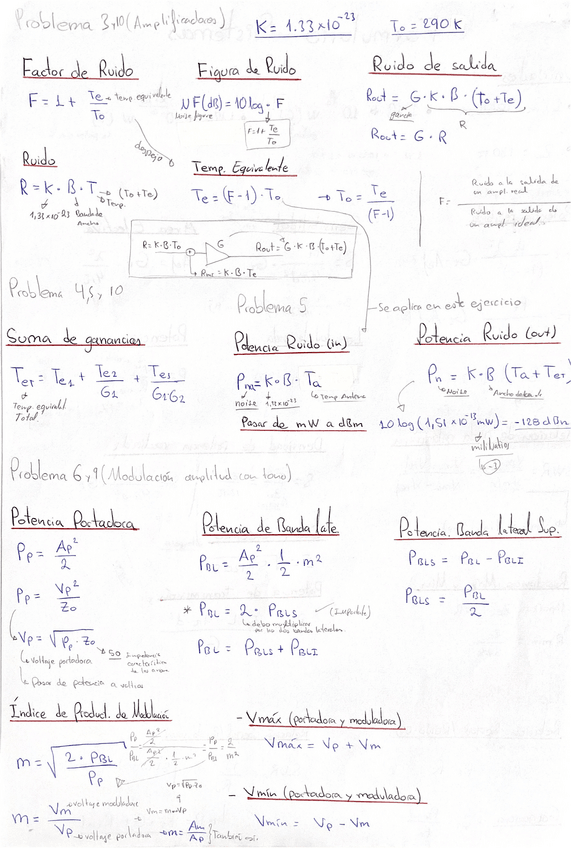 Problema 3 y 10 (Amplificadores)
K = 1.33×10⁻²³
To = 290 K
Factor de Ruido
F = 1 + Te/To
Temp. equivalente
Figura de Ruido
NF(dB) = 10 log · F
Noise figure
F = 1 + Te/To
Ruido de salida
Rout = G · K · B · (To + Te)
R
Rout = G · R
despejo
Ruido
R = K · B · T → (To + Te)
Temp.
Temp. Equivalente
Te = (F-1) · To → To = Te/(F-1)
F = Ruido a la salida de un ampl. real / Ruido a la salida de un ampl. ideal
R = K·B·To
G
Rout = G·K·B·(To+Te)
Rine = K·B·Te
Problema 4, 5, 10
Problema 5
Se aplica en este ejercicio
Suma de ganancias
TeT = Te1 + Te2/G1 + Te3/G1·G2
Temp equival
Total
Potencia Ruido (in)
Pn = K · B · Ta
Noise
Temp Antena
Pasar de mW a dBm
Potencia Ruido (out)
Pn = K · B (Ta + TeT)
Noise
Ancho de banda
10 log (1,51 × 10⁻¹³ mW) = -128 dBm
milivatios
Problema 6 y 9 (Modulación amplitud con tono)
Potencia Portadora
Pp = Ap²/2
Pp = Vp²/Zo
Vp = √Pp · Zo
50 Impedancia característica
Voltaje portadora
Pasar de potencia a voltios
Potencia de Banda late.
PBL = Ap²/2 · 1/2 · m²
* PBL = 2 · PBLS
debo multiplicar por las dos bandas laterales.
PBL = PBLS + PBLI
Potencia. Banda lateral Sup.
PBLS = PBL - PBLI
PBLS = PBL/2
Índice de Product. de Modulación
m = √2 · PBL/Pp
m = Vm/Vp
voltaje moduladora
voltaje portadora
Vm = m · Vp
m = Am/Ap } También así.
- Vmáx (portadora y moduladora)
Vmáx = Vp + Vm
- Vmín (portadora y moduladora)
Vmín = Vp - Vm